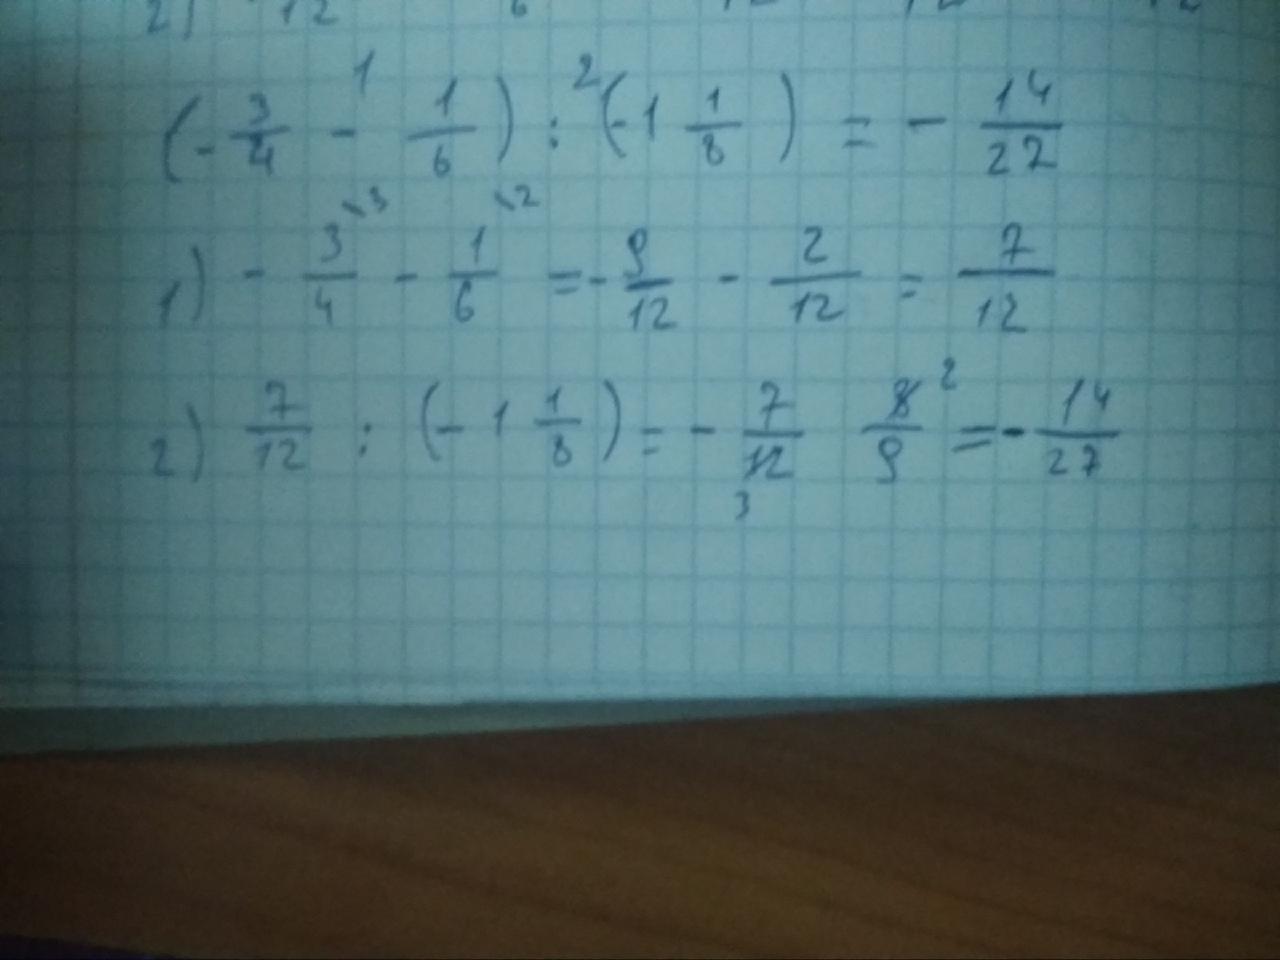 (- 3/4 - 1/6) : (-1 1/8) = - 14/27
1) - 3/4 \3 - 1/6 \2 = - 9/12 - 2/12 = 7/12
2) 7/12 : (-1 1/8) = - 7/12 8/9 = - 14/27